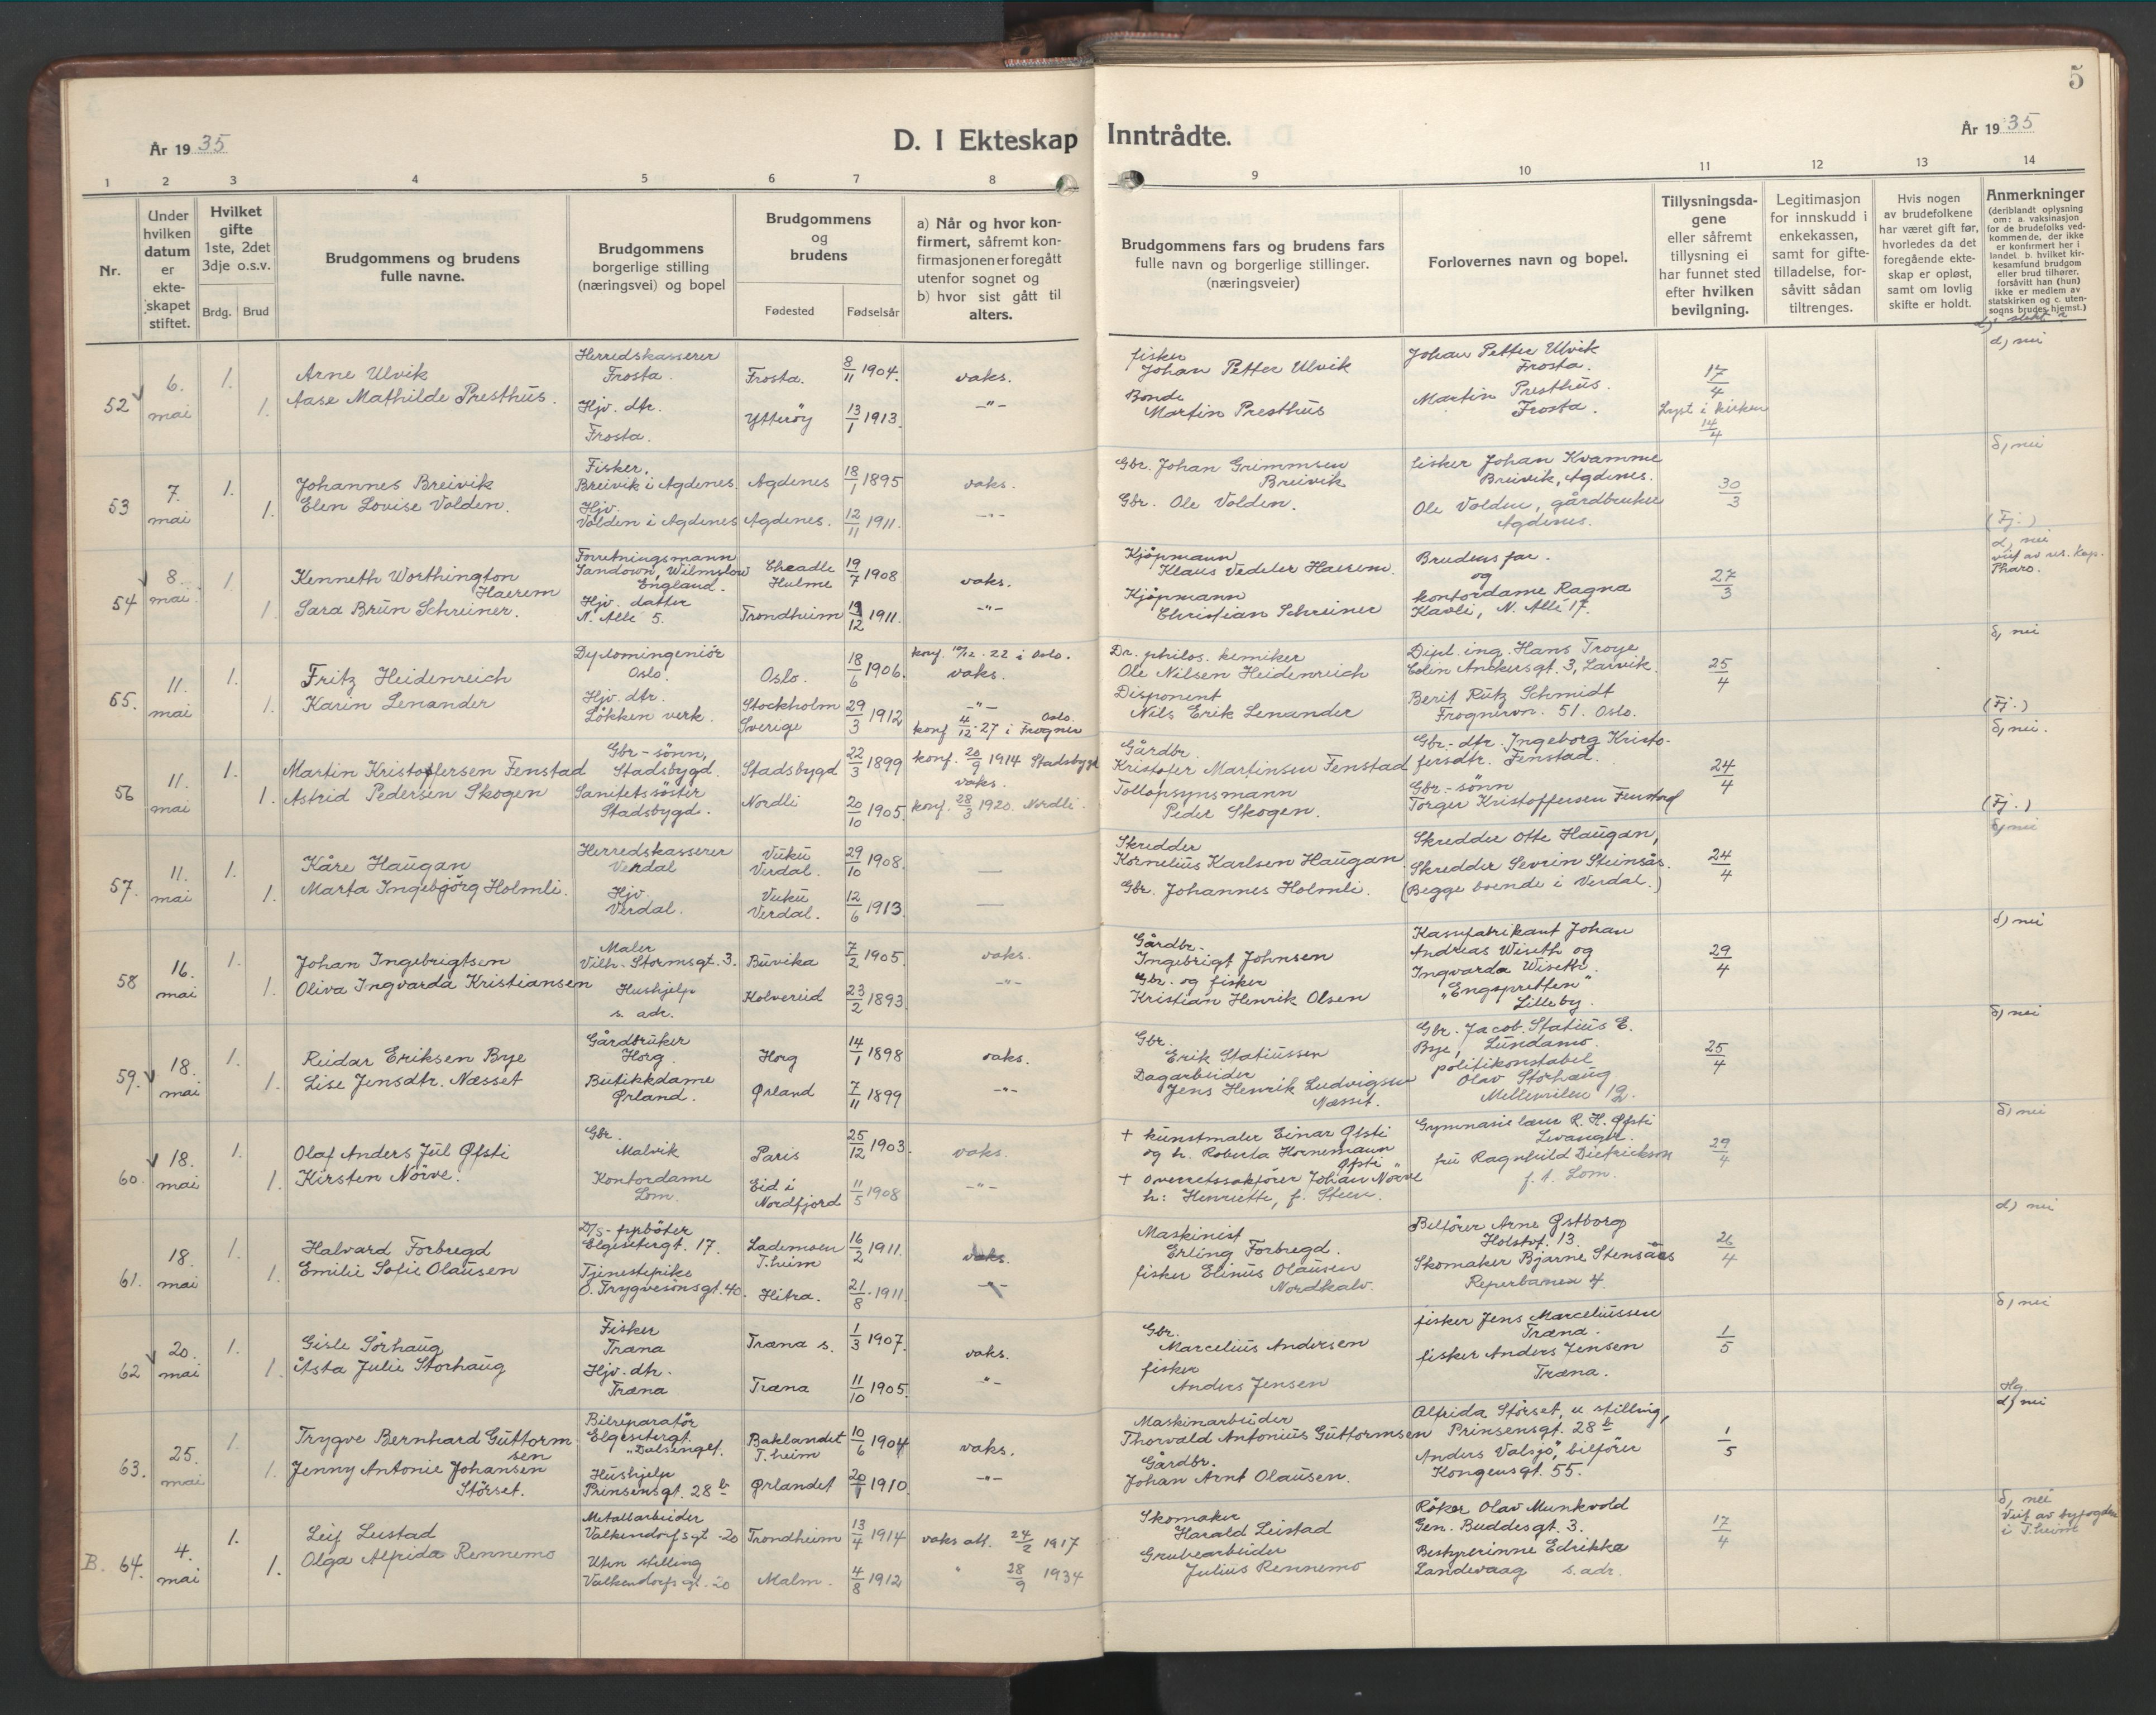 5
År 1935
D. I Ekteskap Inntrådte.
År 1935
1 2 3 4 5 6 7 8 9 10 11 12 13 14
Nr.
Under hvilken datum er ekteskapet stiftet.
Hvilket gifte 1ste, 2det 3dje o.s.v.
Brdg. Brud
Brudgommens og brudens fulle navne.
Brudgommens borgerlige stilling (næringsvei) og bopel
Brudgommens og brudens
Fødested Fødselsår
a) Når og hvor konfirmert, såfremt konfirmasjonen er foregått utenfor sognet og
b) hvor sist gått til alters.
Brudgommens fars og brudens fars fulle navn og borgerlige stillinger. (næringsveier)
Forlovernes navn og bopel.
Tillysningsdagene eller såfremt tillysning ei har funnet sted efter hvilken bevilgning.
Legitimasjon for innskudd i enkekassen, samt for giftetilladelse, forsåvitt sådan tiltrenges.
Hvis nogen av brudefolkene har været gift før, hvorledes da det foregående ekteskap er opløst, samt om lovlig skifte er holdt.
Anmerkninger
(deriblandt oplysning om: a. vaksinasjon for de brudefolks vedkommende, der ikke er konfirmert her i landet b. hvilket kirkesamfund brudgom eller brud tilhører, forsåvitt han (hun) ikke er medlem av statskirken og c. utensogns brudes hjemst.)
52 6. mai 1. 1.
Arne Ulvik
Aase Mathilde Presthus.
Herredskasserer
Frosta.
Hjv. dtr.
Frosta.
Frosta. 8/11 1904. vaks.
Ytterøy 13/1 1913. -"-
fisker
Johan Petter Ulvik
Bonde
Martin Presthus
Johan Petter Ulvik
Frosta.
Martin Presthus.
Frosta.
17/4
Lyst i kirken
14/4
d, nei
53 7. mai 1. 1.
Johannes Breivik
Elen Lovise Volden.
Fisker,
Breivik i Agdenes.
Hjv.
Volden i Agdenes
Agdenes 18/1 1895 vaks.
Agdenes. 12/11 1911. -"-
Gbr. Johan Grimmsen
Breivik
Gbr. Ole Volden.
fisker Johan Kvamme
Breivik, Agdenes.
Ole Volden, gårdbruker
Agdenes.
30/3
d, nei
(Fj.)
54 8. mai 1. 1.
Kenneth Worthington
Haerem
Sara Brun Schreiner.
Forretningsmann
Sandown, Wilmslow
England.
Hjv. datter
N. Allé 5.
Cheadle
Hulme 19/7 1908 vaks.
Trondheim 12 1911. -"-
Kjøpmann
Klaus Vedeler Haerem.
Kjøpmann
Christian Schreiner
Brudens far.
og
kontordame Ragna
Kavli, N. Allé 17.
27/3
d, nei
viet av res. kap.
Pharo.
55. 11. mai 1. 1.
Fritz Heidenreich
Karin Lenander
Dyplomingeniör
Oslo.
Hjv. dtr.
Løkken verk.
Oslo. 18/6 1906.
Stockholm
Sverige 29/3 1912
22 i Oslo.
vaks.
-"-
konf 4/12 27 i Frogner
Oslo.
Dr. philos. kemiker
Ole Nilsen Heidenreich
Disponent
Nils Erik Lenander
Dipl. ing. Hans Troye
Colin Archersgt. 3, Larvik.
Berit Rütz Schmidt
Frognervn. 51. Oslo.
25/4
d, nei
(Fj.)
56 11. mai 1. 1.
Martin Kristoffersen Fenstad
Astrid Pedersen Skogen
Gbr-sønn,
Stadsbygd.
Sanitetssøster
Stadsbygd.
Stadsbygd 22/3 1899 konf. 20/9 1914 Stadsbygd
vaks.
Nordli 20/10 1905. konf. 28/3 1920. Nordli.
Gårdbr.
Kristofer Martinsen Fenstad
Tollopsynsmann
Peder Skogen.
Gbr.-dtr. Ingeborg Kristo-
fersdtr. Fenstad.
Gbr.-sønn
Torger Kristoffersen Fenstad
24/4
d, nei.
(Fj.)
57. 11. mai 1. 1.
Kåre Haugan
Marta Ingebjørg Holmli.
Herredskasserer
Verdal
Hjv.
Verdal.
Vuku
Verdal. 29/10 1908.
Vuku
Verdal. 12/6 1913.
Skredder
Kornelius Karlsen Haugan
Gbr. Johannes Holmli.
Skredder Otte Haugan,
Skredder Sevrin Steinsås.
(Begge boende i Verdal.)
24/4
d, nei
58 16. mai 1. 1.
Johan Ingebrigtsen
Oliva Ingvarda Kristiansen
Maler
Vilh. Stormsgt. 3.
Hushjelp
s. adr.
Buvika 7/2 1905. vaks.
Kolvereid 23/2 1893 -"-
Gårdbr.
Ingebrigt Johnsen
Gbr. og fisker
Kristian Henrik Olsen
Kassefabrikant Johan
Andreas Wiseth og
Ingvarda Wiseth.
"Engspretten"
Lilleby.
29/4
d) nei
59. 18. mai 1. 1.
Reidar Eriksen Bye
Lise Jensdtr. Næsset
Gårdbruker
Horg.
Butikkdame
Ørland.
Horg 14/1 1898 vaks.
Ørland 7/11 1899 -"-
Gbr.
Erik Statiussen
Dagarbeider
Jens Henrik Ludvigsen
Næsset.
Gbr. Jacob Statius E.
Bye, Lundamo.
politikonstabel
Olav Storhaug
Mellemilen 12.
25/4
d) nei
60. 18. mai 1. 1.
Olaf Anders Jul Øfsti
Kirsten Nörve.
Gbr.
Malvik
Kontordame
Lom.
Paris 25/12 1903. vaks.
Eid i
Nordfjord 11/5 1908 -"-
+ kunstmaler Einar Øfsti
og h. Roberta Hornemann
Øfsti
+ overretssakfører Johan Nörve
h: Henriette, f. Steen.
Gymnasielærer R. H. Øfsti
Levanger.
fru Ragnhild Dietrichson
f. t. Lom.
29/4
d) nei
61. 18. mai 1. 1.
Halvard Forbregd
Emilie Sofie Olausen
D/S-fyrbøter
Elgesetergt. 17.
Tjenestepike
O. Trygvesönsgt. 40.
Lademoen
T.heim 16/2 1911. vaks.
Hitra. 21/8 1911. -"-
Maskinist
Erling Forbregd.
fisker Elinus Olausen
Nordkalv.
Bilfører Arne Østborg
Holstvt. 13.
Skomaker Bjarne Stensåes
Reperbanen 4.
26/4
d) nei
62 20. mai 1. 1.
Gisle Sørhaug
Åsta Julie Storhaug
Fisker
Træna
Hjv. dtr.
Træna
Træna s. 1/3 1907. vaks.
Træna 11/10 1905. -"-
Gbr.
Marcelius Andersen
fisker
Anders Jensen
fisker Jens Marceliussen
Træna.
fisker Anders Jensen
Træna.
1/5
d) nei
63. 25. mai 1. 1.
Trygve Bernhard Guttorm
sen
Jenny Antonie Johansen
Störset.
Bilreparatør
Elgesetergt.
Hushjelp
Prinsensgt. 28 b
Baklandet
T.heim 10/6 1904 vaks.
Ørlandet 20 1910. -"-
Maskinarbeider
Thorvald Antonius Guttormsen
Gårdbr.
Johan Arnt Olausen.
Alfrida Störset, u stilling,
Prinsensgt. 28 b
Anders Valsjö, bilfører
Kongensgt. 55.
1/5
Hg.
d) nei
B. 64. 4. mai 1. 1.
Leif Leistad
Olga Alfrida Rennemo
Metallarbeider
Valkendorfsgt. 20
Uten stilling
Valkendorfsgt. 20
Trondheim 13/4 1914 vaks att. 24/2 1917
Malm. 4/8 1912 " 28/9 1934
Skomaker
Harald Leistad
Grubearbeider
Julius Rennemo
Røker Olav Munkvold
Gen. Buddesgt. 3.
Bestyrerinne Edrikka
Landevaag s. adr.
17/4
d, nei
Viet av byfogden
i T.heim